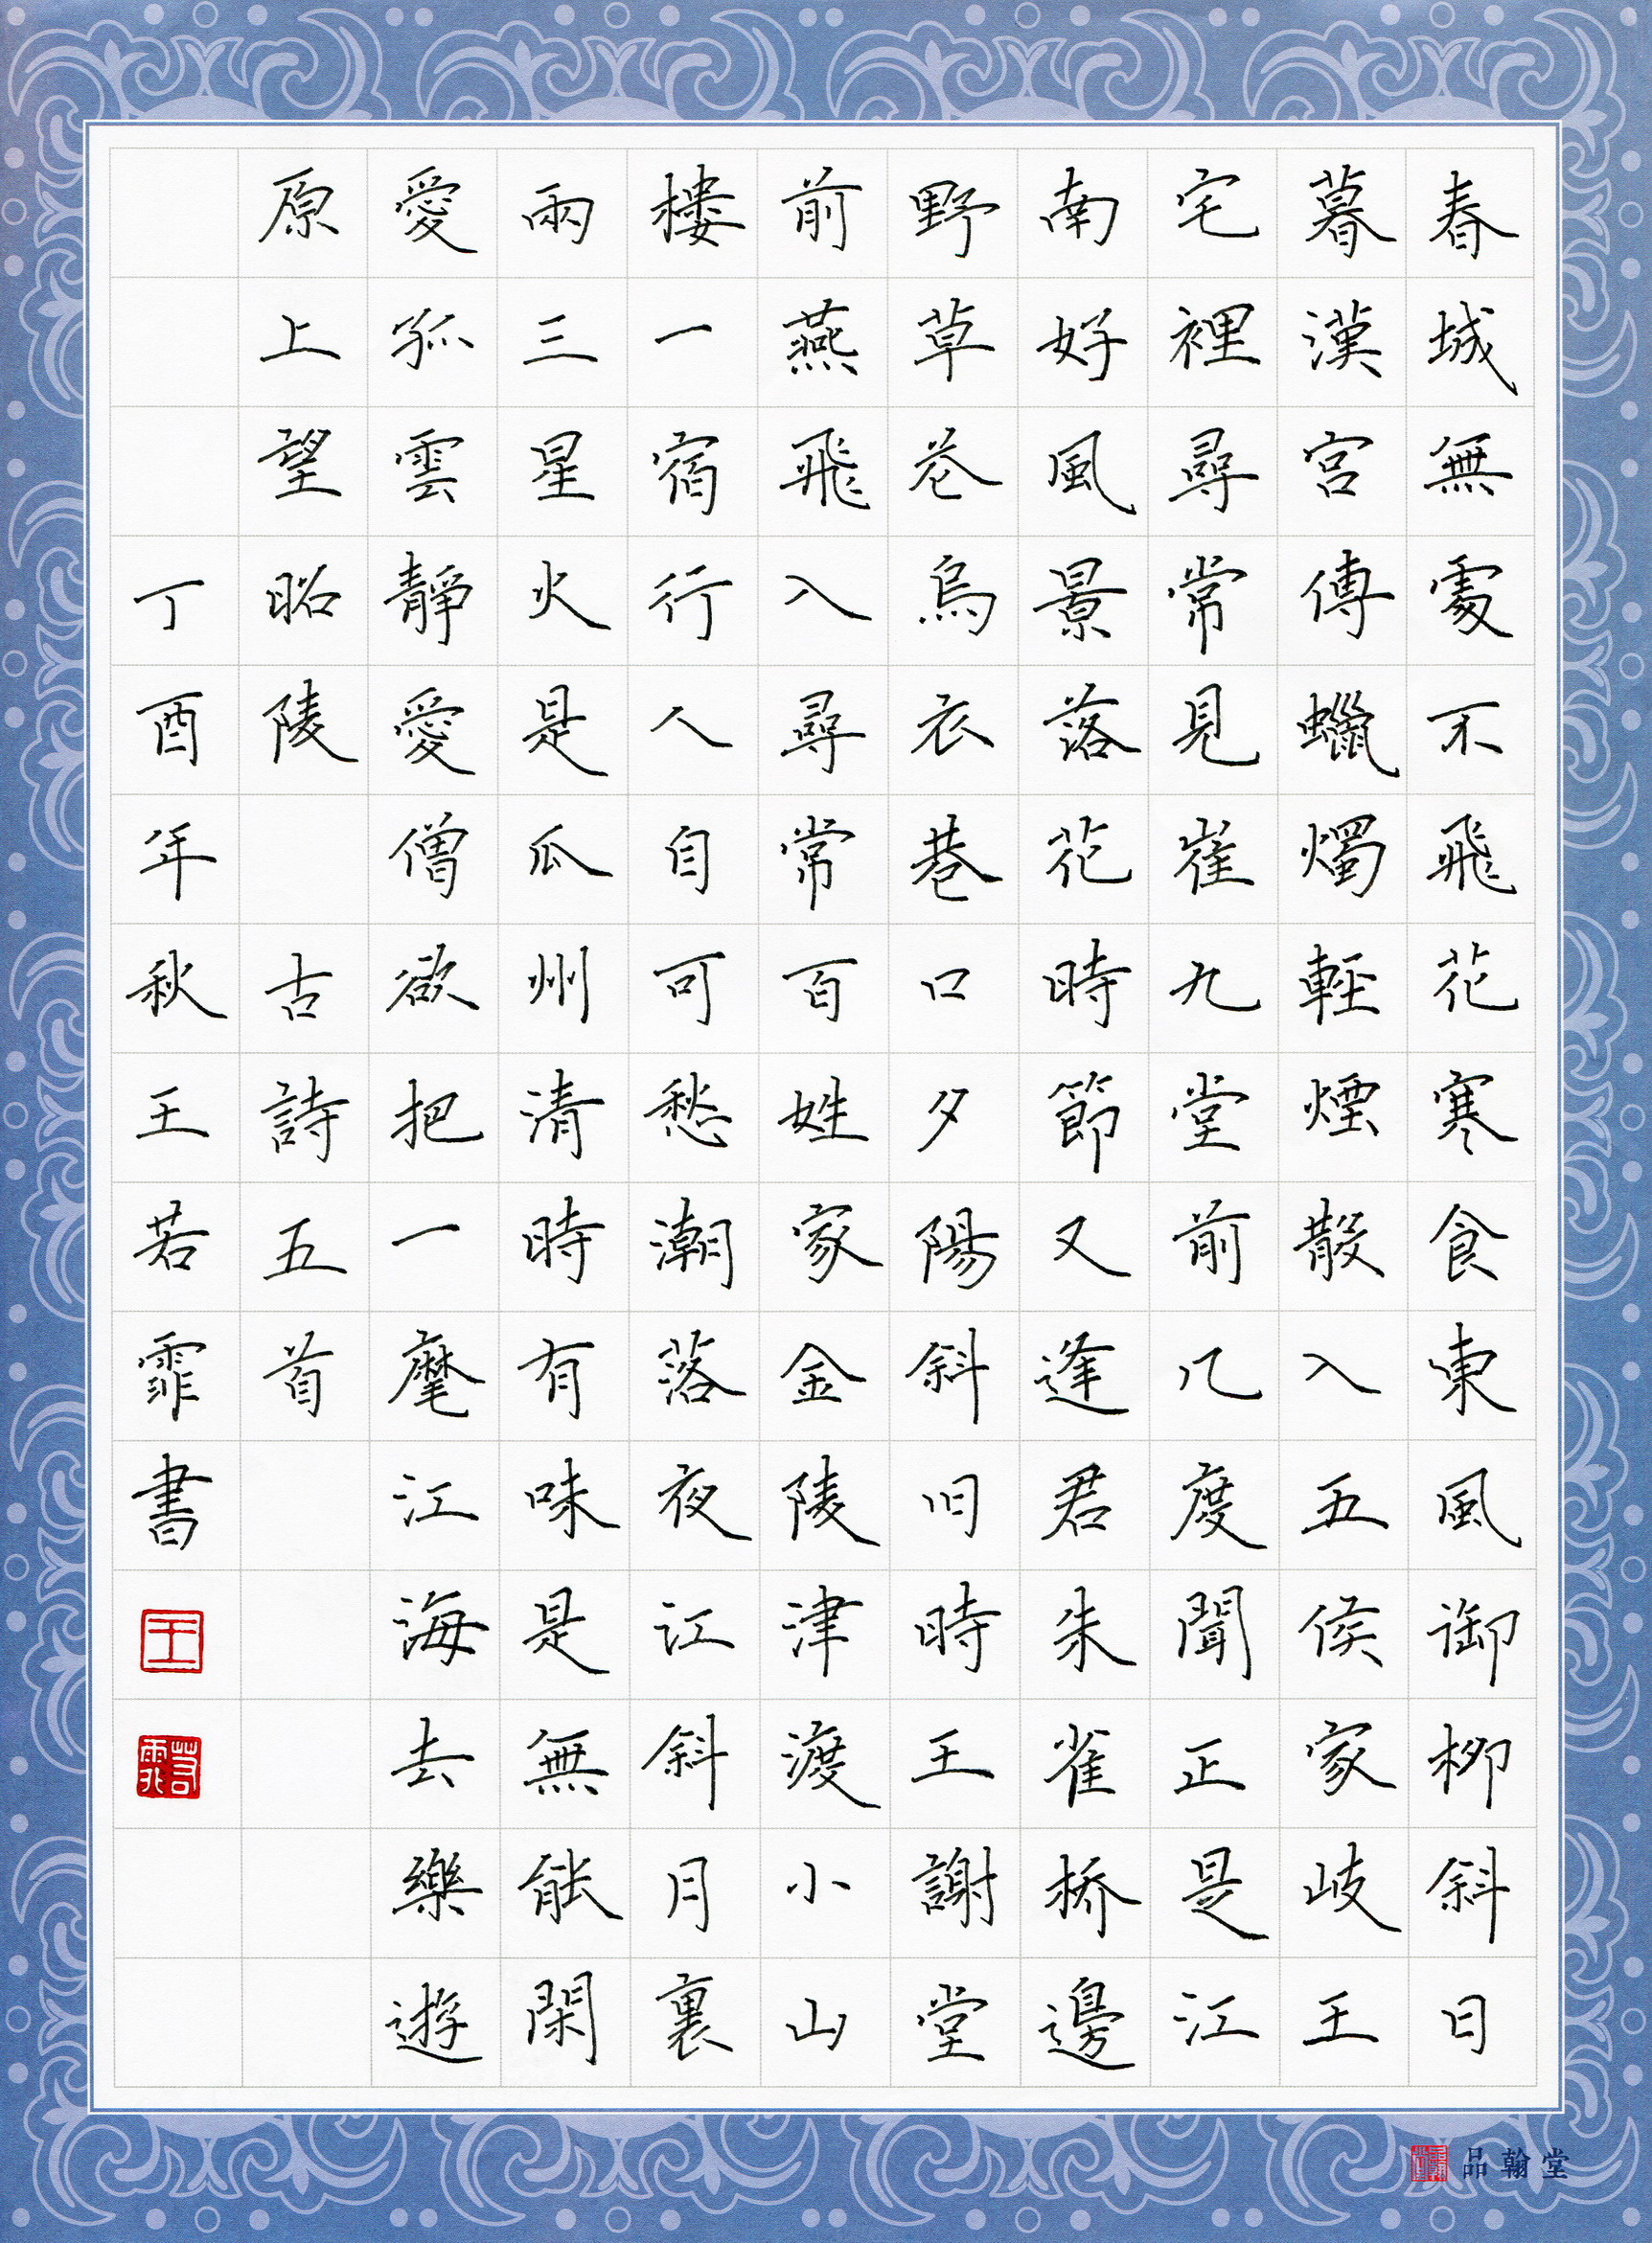 春城無處不飛花寒食東風御柳斜日
暮漢宮傳蠟燭輕煙散入五侯家岐王
宅裡尋常見崔九堂前几度聞正是江
南好風景落花時節又逢君朱雀桥邊
野草花烏衣巷口夕陽斜旧時王謝堂
前燕飛入尋常百姓家金陵津渡小山
楼一宿行人自可愁潮落夜江斜月裏
兩三星火是瓜州清時有味是無能閑
愛孤雲靜愛僧欲把一麾江海去樂遊
原上望昭陵 古詩五首
丁酉年秋王若霏書
王
若霏
品翰堂